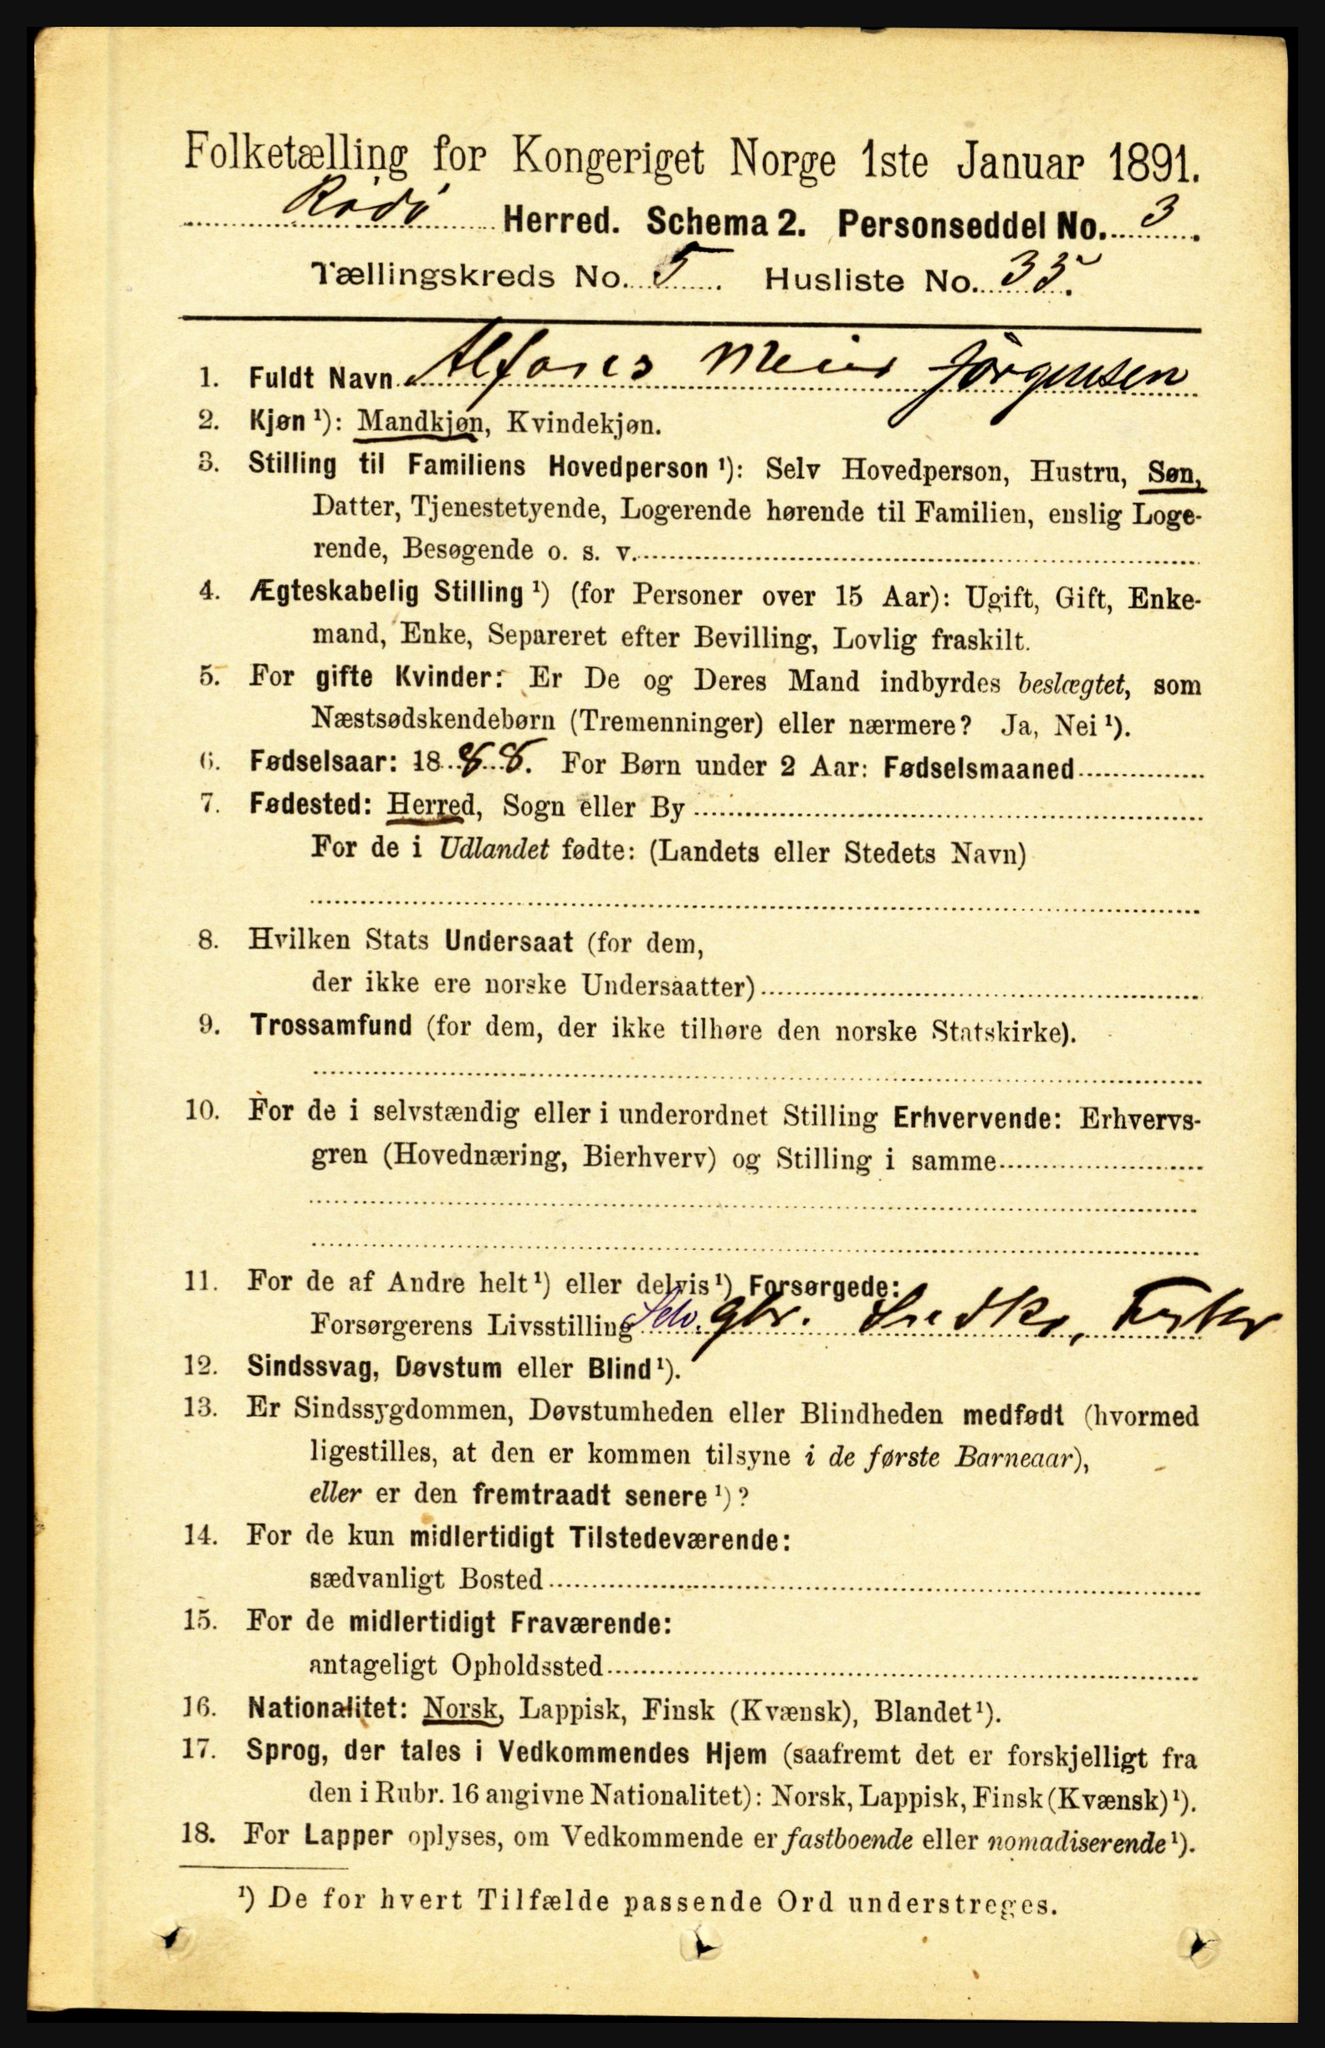 Folketælling for Kongeriget Norge 1ste Januar 1891.
Rödö Herred. Schema 2. Personseddel No. 3.
Tællingskreds No. 5. Husliste No. 35.
1. Fuldt Navn Alfons Meier Jörgensen
2. Kjøn¹): Mandkjøn, Kvindekjøn.
3. Stilling til Familiens Hovedperson¹): Selv Hovedperson, Hustru, Søn,
Datter, Tjenestetyende, Logerende hørende til Familien, enslig Loge-
rende, Besøgende o. s. v.
4. Ægteskabelig Stilling¹) (for Personer over 15 Aar): Ugift, Gift, Enke-
mand, Enke, Separeret efter Bevilling, Lovlig fraskilt.
5. For gifte Kvinder: Er De og Deres Mand indbyrdes beslægtet, som
Næstsødskendebørn (Tremenninger) eller nærmere? Ja, Nei¹).
6. Fødselsaar: 1888. For Børn under 2 Aar: Fødselsmaaned
7. Fødested: Herred, Sogn eller By
For de i Udlandet fødte: (Landets eller Stedets Navn)
8. Hvilken Stats Undersaat (for dem,
der ikke ere norske Undersaatter)
9. Trossamfund (for dem, der ikke tilhøre den norske Statskirke).
10. For de i selvstændig eller i underordnet Stilling Erhvervende: Erhvervs-
gren (Hovednæring, Bierhverv) og Stilling i samme
11. For de af Andre helt¹) eller delvis¹) Forsørgede:
Forsørgerens Livsstilling Selv. gbr.
12. Sindssvag, Døvstum eller Blind¹).
13. Er Sindssygdommen, Døvstumheden eller Blindheden medfødt (hvormed
ligestilles, at den er kommen tilsyne i de første Barneaar),
eller er den fremtraadt senere¹)?
14. For de kun midlertidigt Tilstedeværende:
sædvanligt Bosted
15. For de midlertidigt Fraværende:
antageligt Opholdssted
16. Nationalitet: Norsk, Lappisk, Finsk (Kvænsk), Blandet¹).
17. Sprog, der tales i Vedkommendes Hjem (saafremt det er forskjelligt fra
den i Rubr. 16 angivne Nationalitet): Norsk, Lappisk, Finsk (Kvænsk)¹).
18. For Lapper oplyses, om Vedkommende er fastboende eller nomadiserende¹).
¹) De for hvert Tilfælde passende Ord understreges.